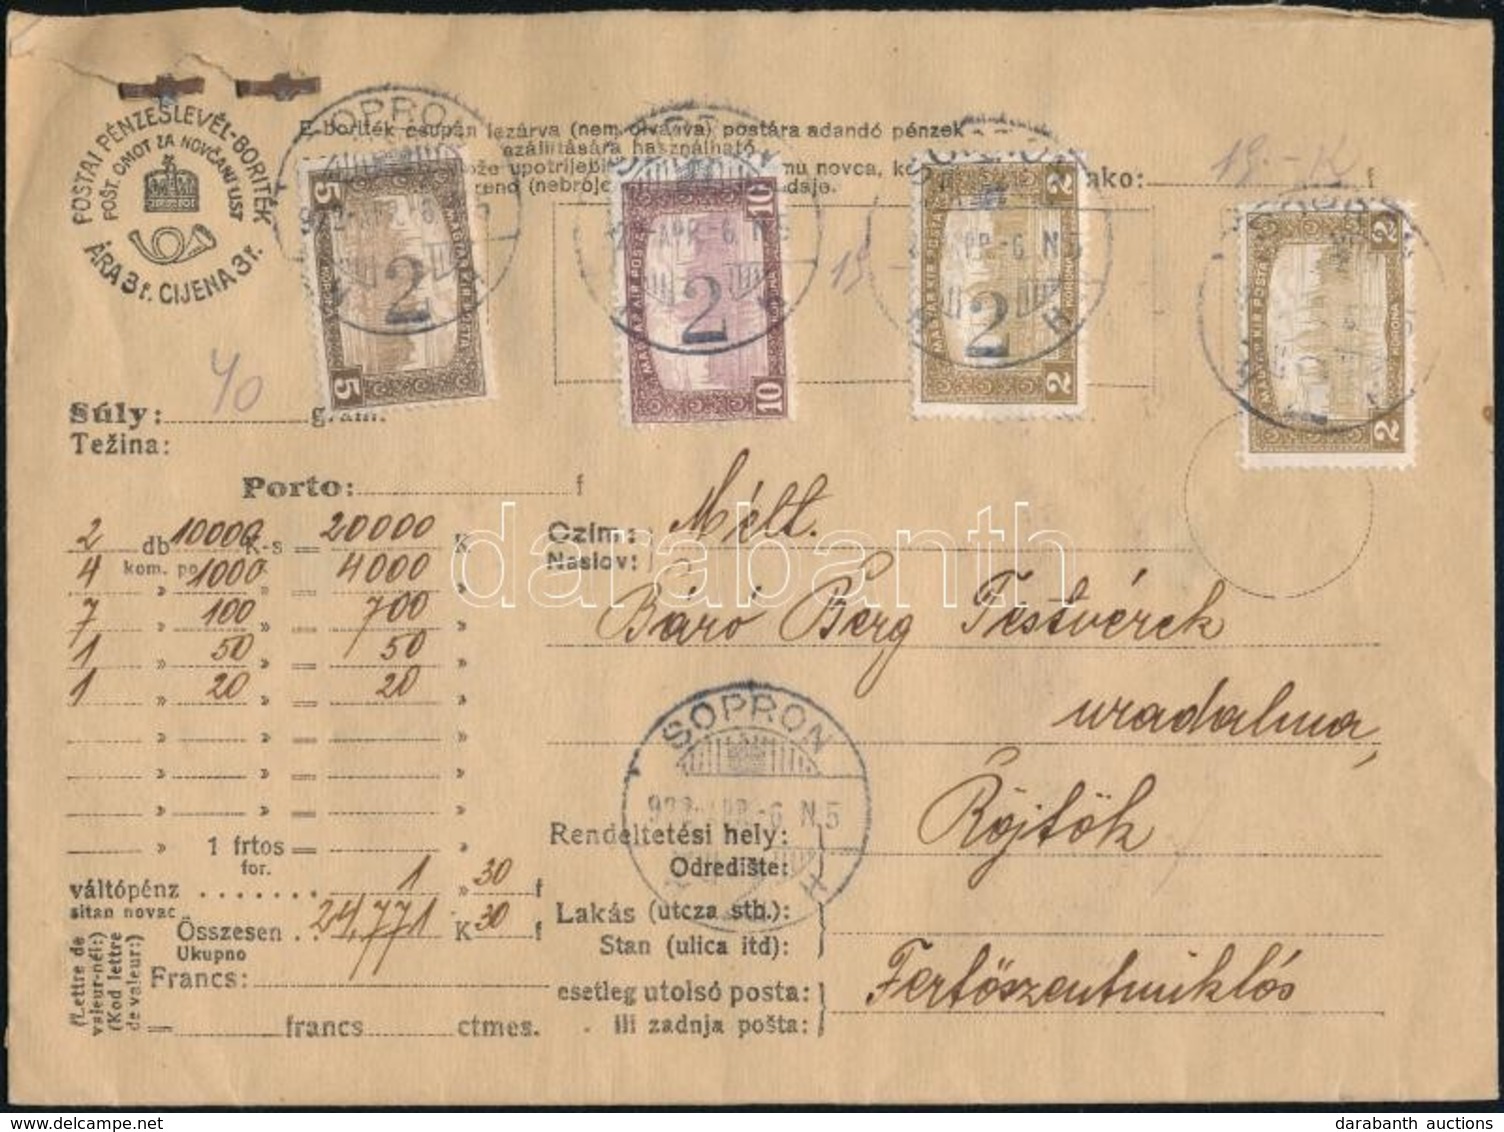 POSTAI PÉNZESLEVÉL-BORITÉK
POŠT. OMOT ZA NOVČANI LIST
ÁRA 3 f. CIJENA 3 f.
E boriték csupán lezárva (nem olvasva) postára adandó pénzek
szállitására használható.
SOPRON
SOPRON
5
MAGYAR KIR. POSTA
5
2
10
MAGYAR KIR. POSTA
10
2
APR.-6. N.5
2
MAGYAR KIR. POSTA
KORONA
2
2
2
MAGYAR KIR. POSTA
KORONA
2
19.-K f
40
Súly: gram.
Težina:
Porto: f
2 db 10000 K-s = 20000 K
4 kom. po 1000 " = 4000 "
7 " 100 " = 700 "
1 " 50 " = 50 "
1 " 20 " = 20 "
" " = "
" " = "
" " = "
" 1 frtos = "
for.
váltópénz 1 " 30 f
sitan novac
Összesen 24,771 K 30 f
Ukupno
(Lettre de
valeur-nél:)
(Kod lettre
de valeur:)
Francs:
= francs ctmes.
Czim:
Naslov:
Mélt.
Báró Berg Testvérek
uradalma,
SOPRON
922 APR.-6. N.5
Rendeltetési hely:
Odredište:
Röjtök
Lakás (utcza stb.):
Stan (ulica itd):
esetleg utolsó posta:
Ili zadnja pošta:
Fertőszentmiklós
darabanth
darabanth auctions